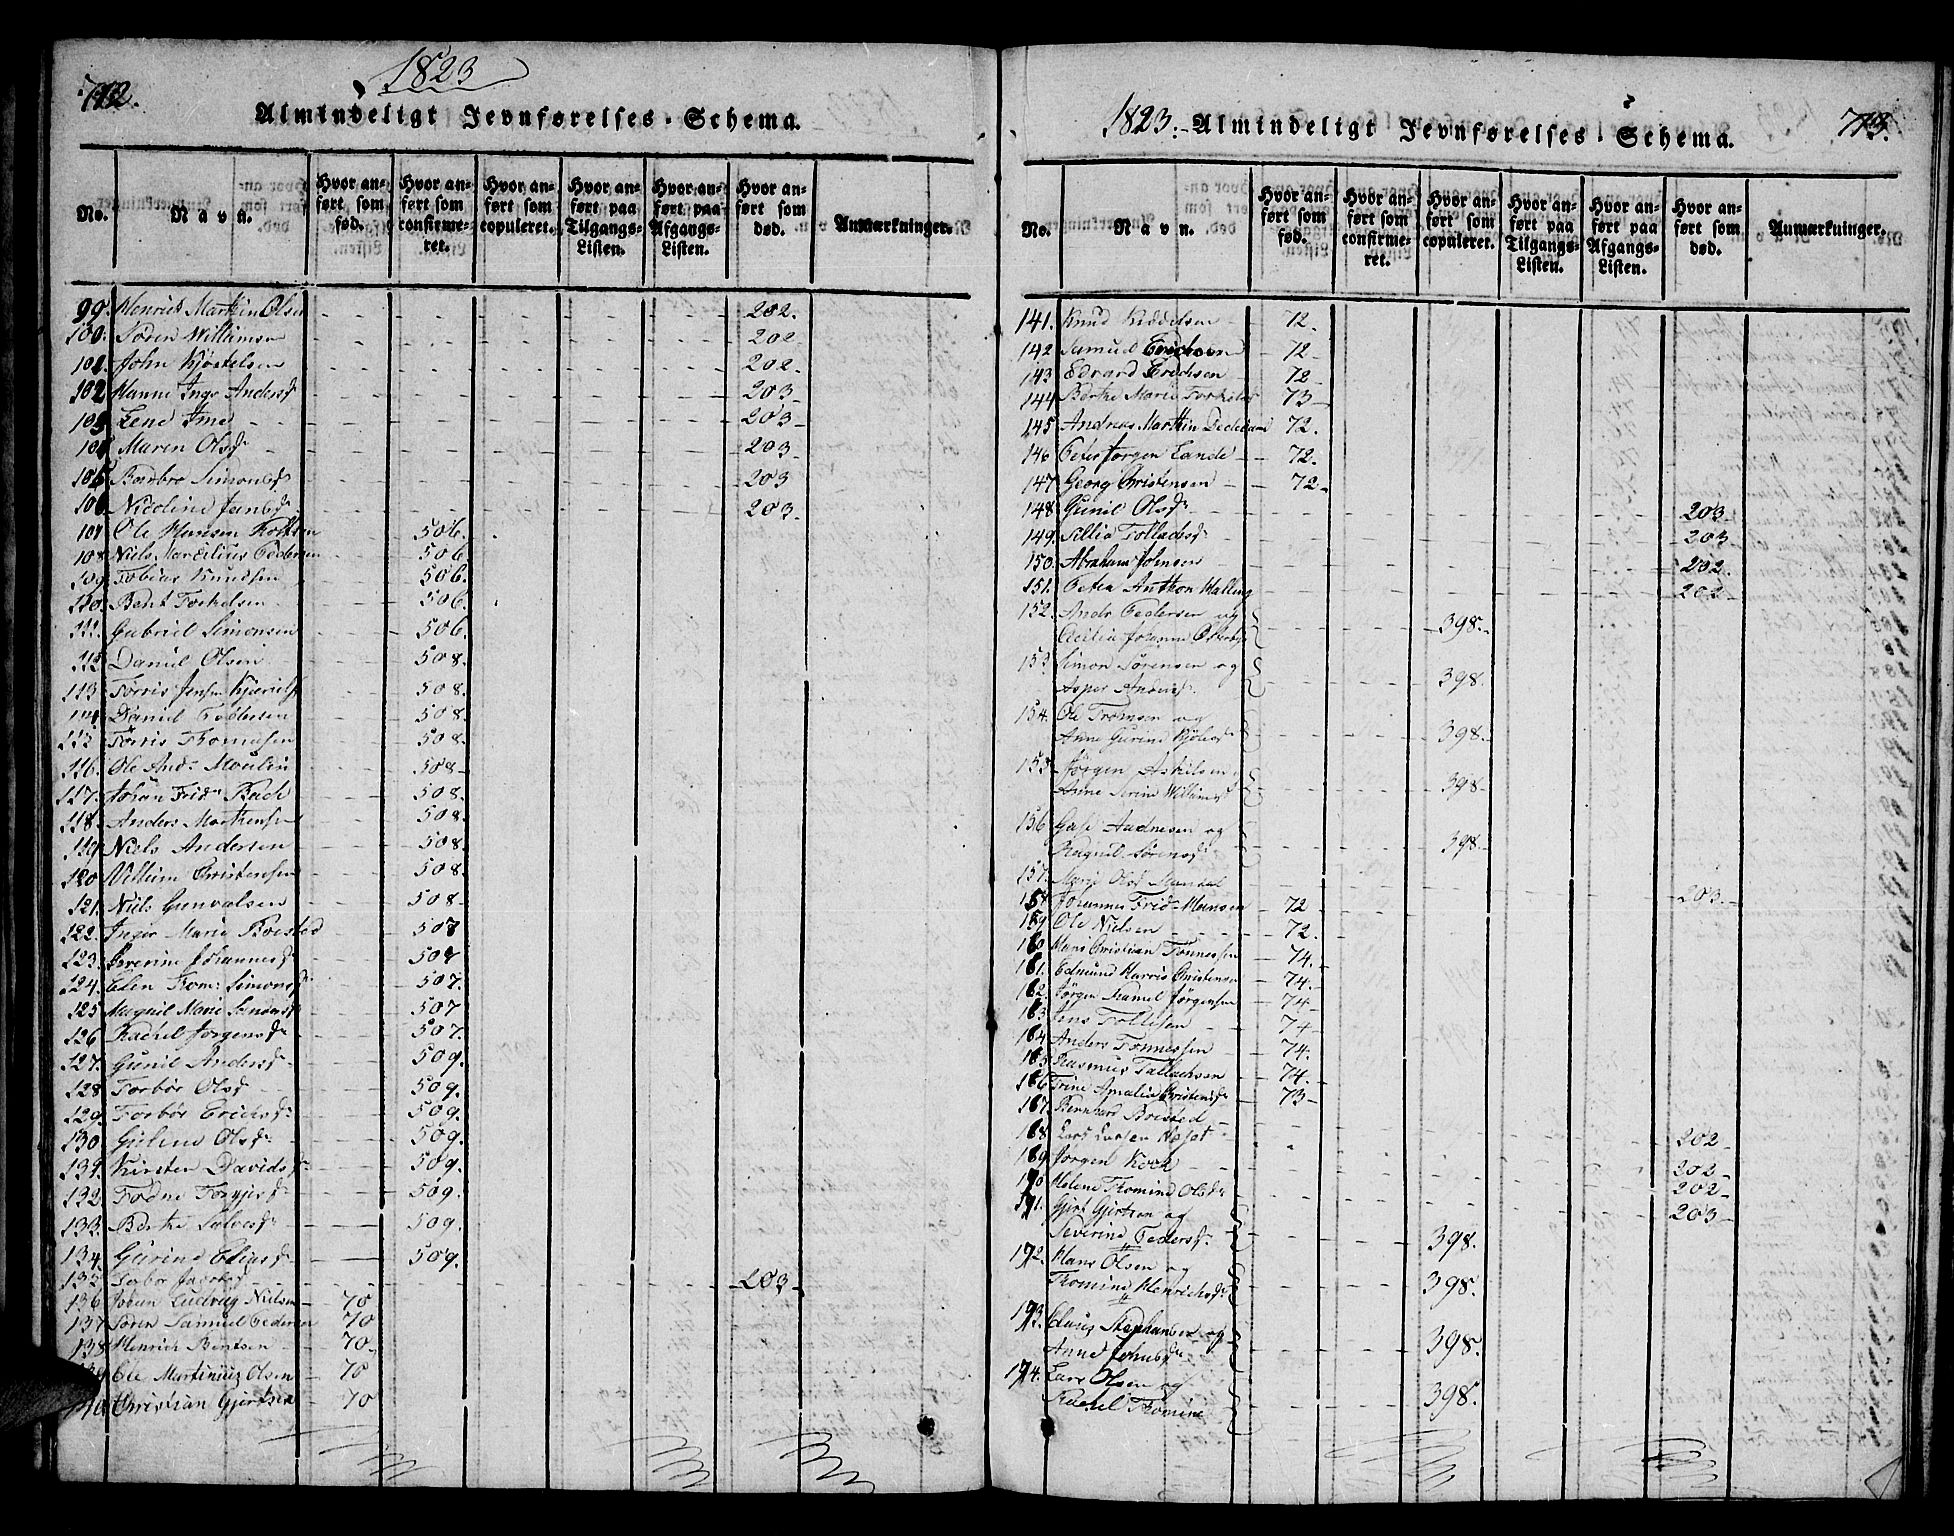 712.
1823
Almindeligt Jevnførelses-Schema.
No. Navn. Hvor anført som fød. Hvor anført som confirmeret. Hvor anført som copuleret. Hvor anført paa Tilgangs-Listen. Hvor anført paa Afgangs-Listen. Hvor anført som død. Anmærkninger.
99. Henrich Marthin Olsen 202.
100. Sören Willumsen 202.
101. John Kjöstelsen 202.
102 Hanne Inge Andersd 203.
103. Lene 203.
104 Maren Olsdr 203.
105. Barbro Simonsdr 203
106. Nicoline Jensdr 203.
107 Ole Hansen 506.
108. Niels Marcelius Pedersen 506.
109. Tobias Knudsen 506.
110. Bent Torkelsen 506.
111. Gabriel Simonsen 506.
112. Daniel Olsen 508.
113. Torris Jensen 508.
114. Daniel 508.
115. Torris Thomassen 508.
116. Ole Andr Moulin 508.
117. Johan Fridr Bach 508.
118. Anders Marthensen 508.
119. Niels Andersen 508.
120 Villum Christensen 508.
121. Niels Gunvalsen 508.
122. Inger Marie Boisted 507
123. Severine Johannesdr 507
124. Elen Trom: Simonsdr 507.
125 Magnil Marie Simonsdr 507
126 Rachel Jörgensdr 507.
127. Gunil Andersdr 509.
128 Torbör Olsdr 509.
129. Torbör Erichsdr 509.
130 Guline Olsdr 509.
131. Kirsten Davidsdr 509.
132. Todne 509.
133. Berthe Salvesdr 509.
134. Gurine Eliasdr 509.
135 Torbor Jacobsdr 203.
136. Johan Ludvig Nielsen 70
137 Sören Samuel Pedersen 70
138. Henrich Bentsen 70
139 Ole Martinius Olsen 70
140. Christian Gjertsen 70
1823. Almindeligt Jevnførelses-Schema. 713.
No. Navn. Hvor anført som fød. Hvor anført som confirmeret. Hvor anført som copuleret. Hvor anført paa Tilgangs-Listen. Hvor anført paa Afgangs-Listen. Hvor anført som død. Anmærkninger.
141. Knud Kiddelsen 72.
142 Samuel Erichsen 72
143 Edvard Erichsen 72
144 Berthe Marie Torkelsd 73
145 Andreas Marthin 72.
146 Peter Jörgen Lande 72.
147 Georg Christensen 72
148. Gunil Olsdr 203
149. Sillia Tollachsdr 203
150. Abraham Johnsen 202.
151. Peter Anthon Walling 202
152. Andr Pedersen og
Cecilia Johanne 398.
153. Simon Sörensen og
Asper Andersdr 398.
154. Ole Tromsen og
Anne Gurine 398.
155 Jörgen Askelsen
Anne Serine Willumsd 398.
156 Aadnesen og
Ragnil Sörensdr 398.
157. Marie Olsd Mandal 203.
158. Johannes Frid Hansen 72.
159 Ole Nielsen 72.
160 Hans Christian Tönnessen 74.
161. Edmund Harris Christensen 74.
162. Jörgen Samuel Jörgensen 74
163 Jens Tollisen 74
164 Anders Tönnessen 74.
165 Rasmus Tallachsen 74.
166 Trine Amalia Christensdr 73
167. Bernhard Boisted
168 Lars Larsen 202
169 Jörgen Koch 202
170 Helene Tromine Olsdr 202
171. Gjert Gjertsen og 203
Severine Pedersdr 398.
172. Hans Olsen og
Tromine Henrichsdr 398.
173. Claus Stephansen og
Anne Johnsdr 398.
174. Lars Olsen og
Rachel Tromine 398.